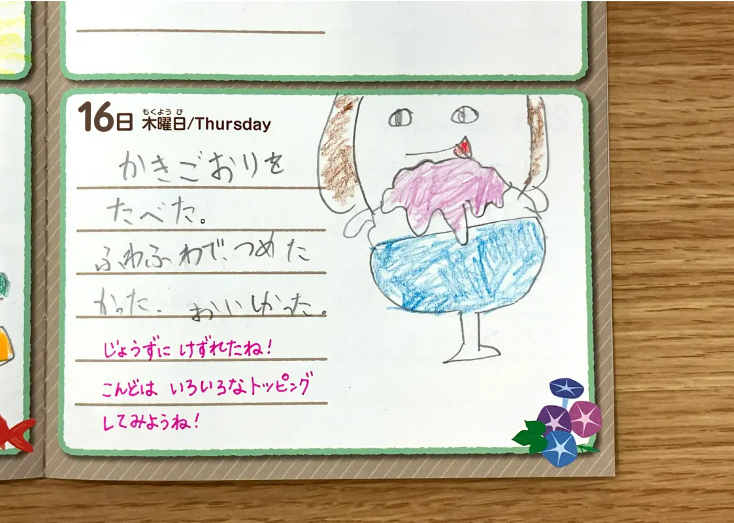 16日 木曜日/Thursday
もくようび
かきごおりを
たべた。
ふわふわで、つめた
かった。おいしかった。
じょうずに けずれたね!
こんどは いろいろなトッピング
してみようね!